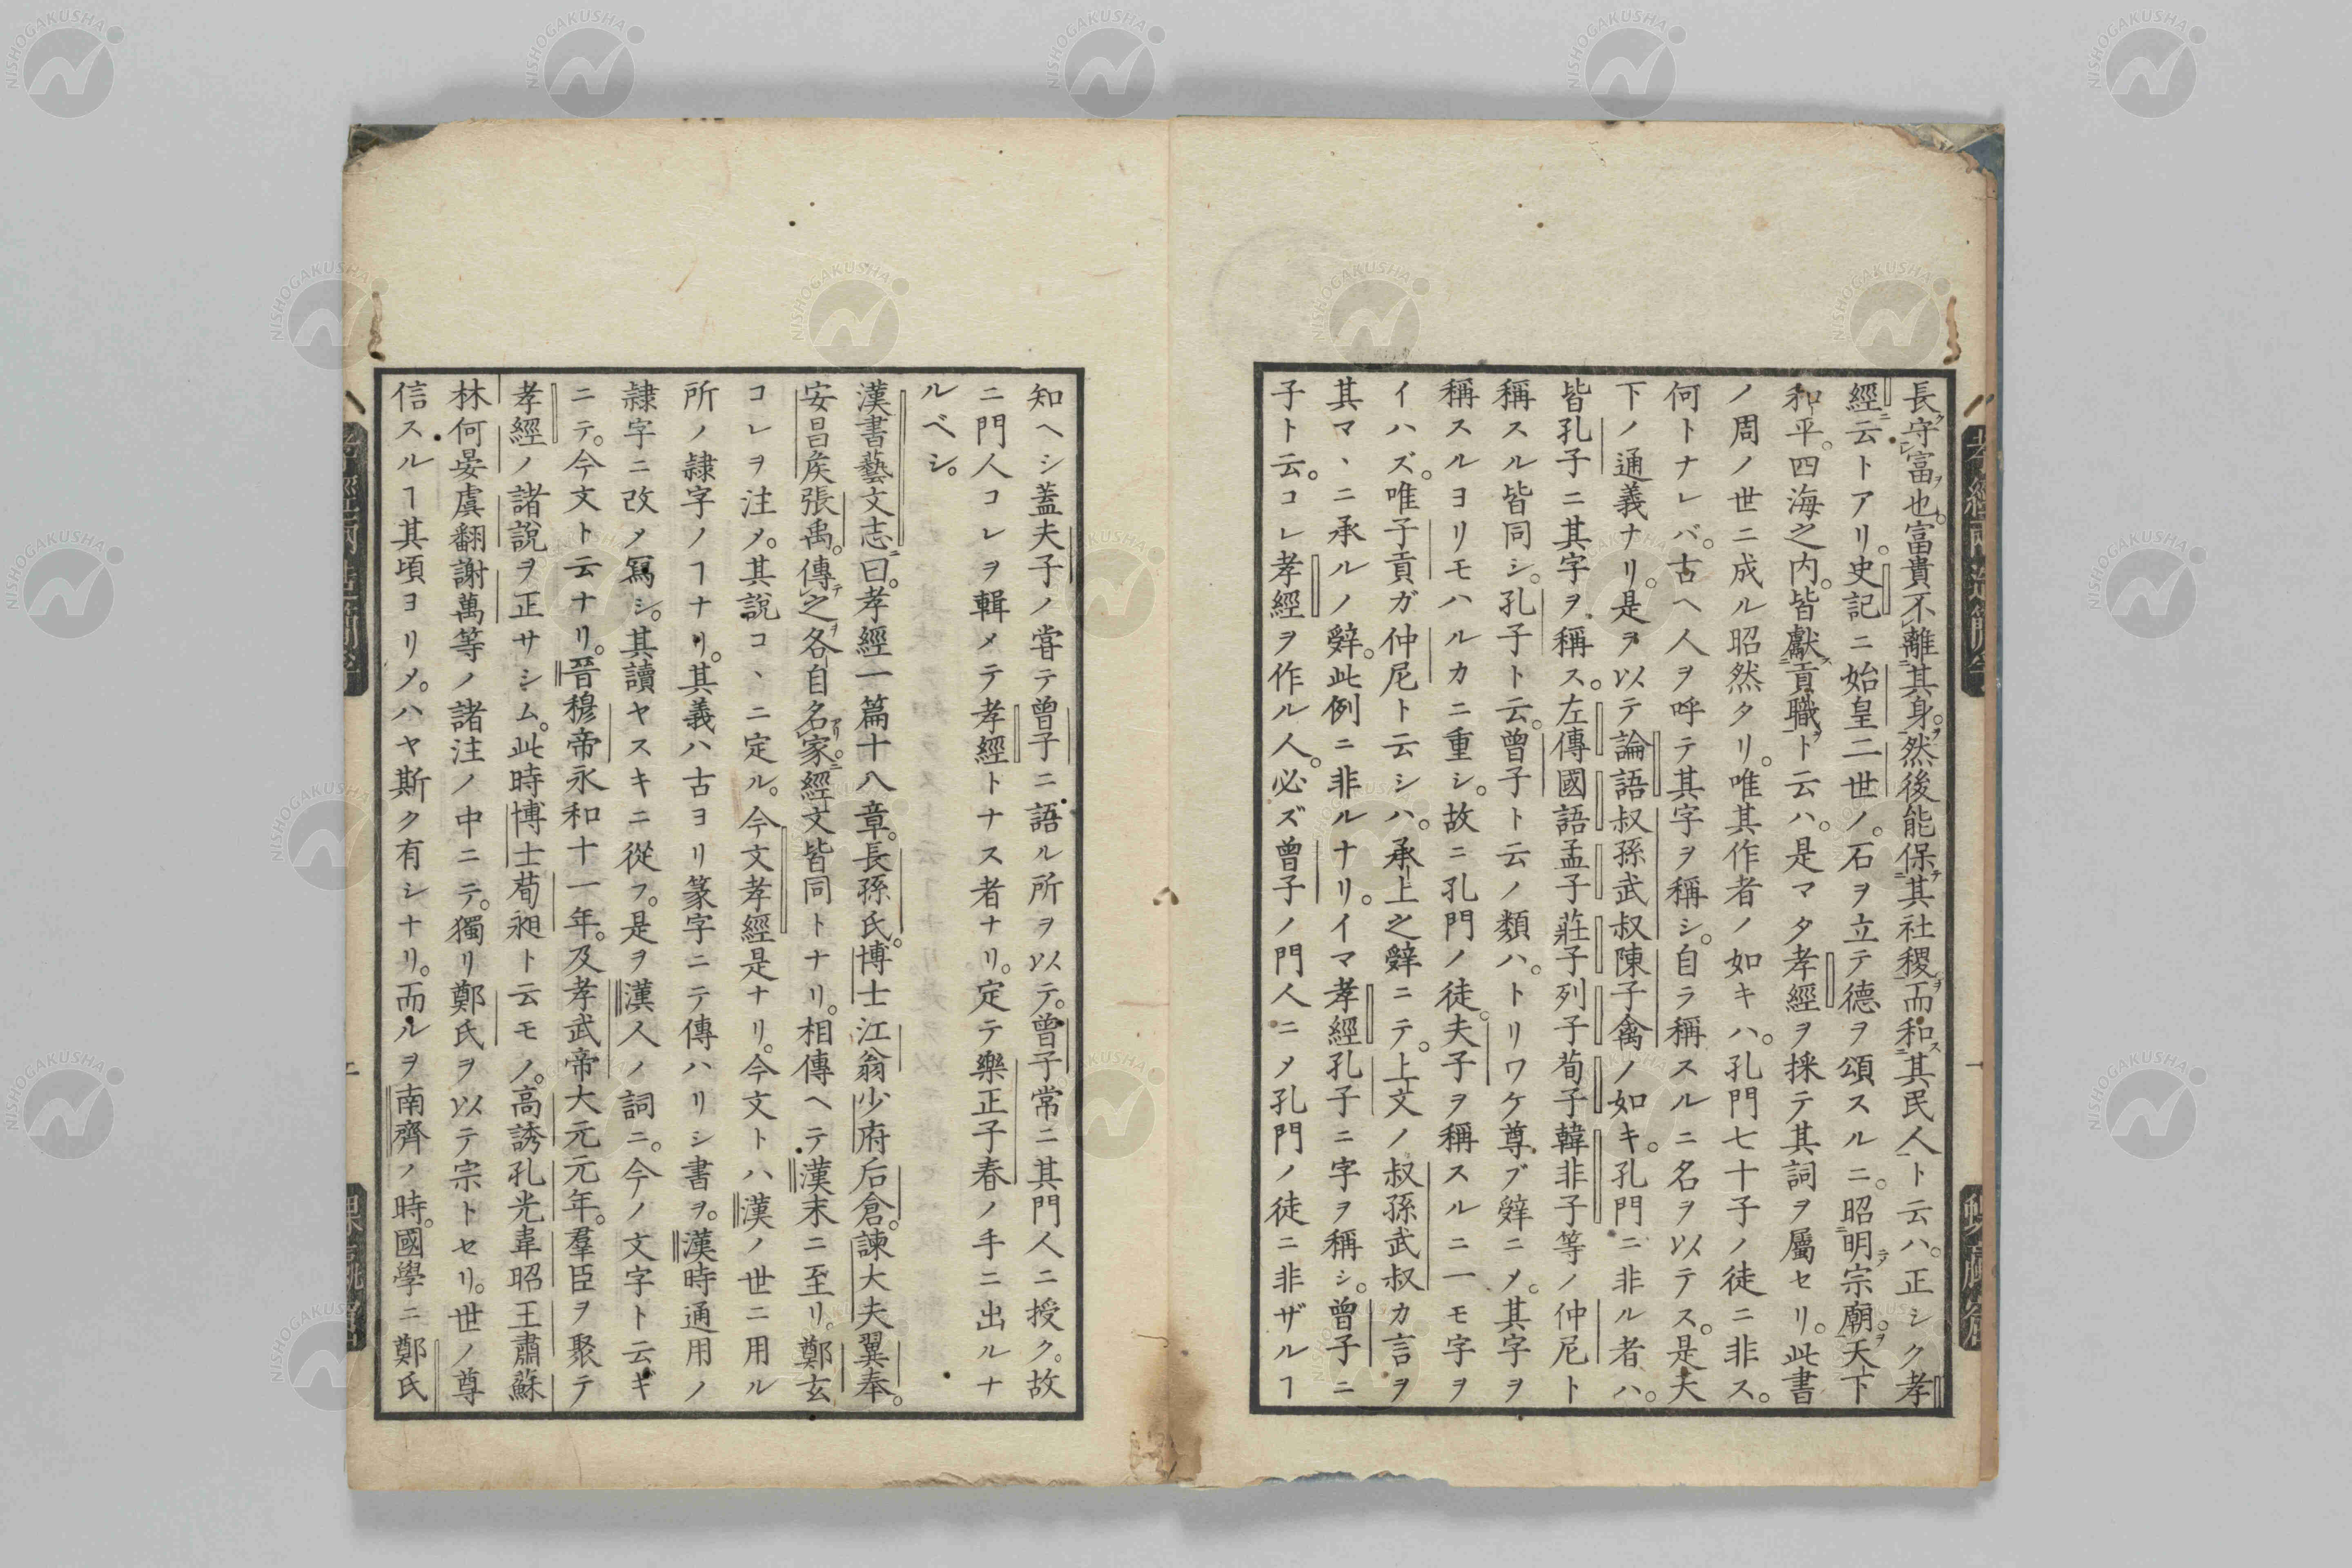 長守富也富貴不離其身。然後能保其社稷而和其民人ト云ハ。正シク孝
經云トアリ。史記ニ始皇二世ノ。石ヲ立テ德ヲ頌スルニ。昭明宗廟。天下
和平。四海之内。皆獻貢職ト云ハ。是マタ孝經ヲ採テ其詞ヲ屬セリ。此書
ノ周ノ世ニ成ル昭然タリ。唯其作者ノ如キハ。孔門七十子ノ徒ニ非ス。
何トナレバ。古ヘ人ヲ呼テ其字ヲ稱シ。自ラ稱スルニ名ヲ以テス。是天
下ノ通義ナリ。是ヲ以テ論語叔孫武叔陳子禽ノ如キ。孔門ニ非ル者ハ。
皆孔子ニ其字ヲ稱ス。左傳國語孟子莊子列子荀子韓非子等ノ仲尼ト
稱スル皆同シ。孔子ト云。曾子ト云ノ類ハ。トリワケ尊ブ辤ニメ。其字ヲ
稱スルヨリモハルカニ重シ。故ニ孔門ノ徒。夫子ヲ稱スルニ一モ字ヲ
イハズ。唯子貢ガ仲尼ト云シハ。承上之辤ニテ。上文ノ叔孫武叔カ言ヲ
其マヽニ承ルノ辤。此例ニ非ルナリ。イマ孝經孔子ニ字ヲ稱シ。曾子ニ
子ト云。コレ孝經ヲ作ル人。必ズ曾子ノ門人ニメ孔門ノ徒ニ非ザルヿ
知ヘシ蓋夫子ノ嘗テ曾子ニ語ル所ヲ以テ。曾子常ニ其門人ニ授ク。故
ニ門人コレヲ輯メテ孝經トナス者ナリ。定テ樂正子春ノ手ニ出ルナ
ルベシ。
漢書藝文志曰。孝經一篇十八章。長孫氏。博士江翁少府后倉。諫大夫翼奉。
安昌矦張禹。傳之各自名家。經文皆同トナリ。相傳ヘテ漢末ニ至リ。鄭玄
コレヲ注メ。其說コヽニ定ル。今文孝經是ナリ。今文トハ漢ノ世ニ用ル
所ノ隷字ノヿナリ。其義ハ古ヨリ篆字ニテ傳ハリシ書ヲ。漢時通用ノ
隷字ニ改メ寫シ。其讀ヤスキニ從フ。是ヲ漢人ノ詞ニ。今ノ文字ト云ギ
ニテ。今文ト云ナリ。晉穆帝永和十一年。及孝武帝大元元年。羣臣ヲ聚テ
孝經ノ諸說ヲ正サシム。此時博士荀昶ト云モノ。高誘孔光韋昭王肅蘇
林何晏虞翻謝萬等ノ諸注ノ中ニテ。獨リ鄭氏ヲ以テ宗トセリ。世ノ尊
信スルヿ其頃ヨリメ。ハヤ斯ク有シナリ。而ルヲ南齊ノ時。國學ニ鄭氏